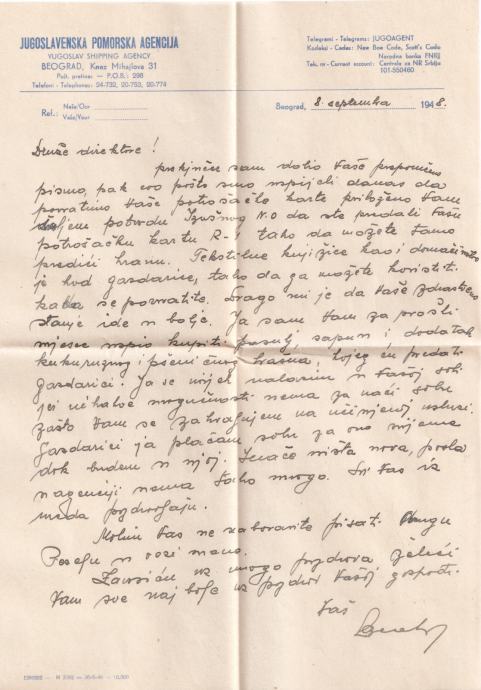 JUGOSLAVENSKA POMORSKA AGENCIJA
YUGOSLAV SHIPPING AGENCY
BEOGRAD, Knez Mihajlova 31
Pošt. pretinac — P.O.B.: 298
Telefoni - Telephones: 24-732, 20-753, 20-774
Telegrami - Telegrams: JUGOAGENT
Kodeksi - Codes: New Boe Code, Scott's Code
Narodna banka FNRJ
Tek. rn - Current account: Centrala za NR Srbiju
101-950460
Ref.: Naše/Our
Vaše/Your
Beograd, 8. septembra 1948.
Druže direktore!
prekjučer sam dobio Vaše preporučeno
pismo, pak evo pošto smo uspijeli danas da
povratimo Vaše potrošačke karte priloženo Vam
šaljem potvrdu N.O da ste predali Vašu
potrošačku kartu R-1 tako da možete tamo
predići hranu. Tekstilne knjižice kao i domaćinstva
je kod gazdarice, tako da ga možete koristiti
kada se povratite. Drago mi je da Vaše zdravstveno
stanje ide n bolje. Ja sam Vam za prošli
mjesec uspio kupiti pasulj, sapun i dodatak
kukuruznog i pšeničnog brašna, kojeg ću predati
gazdarici. Ja se uvijek nalazim u Vašoj sobi
jer nikakve mogućnosti nema za naći sobu
zašto Vam se zahvaljujem na učinjenoj usluzi.
Gazdarici ja plaćam sobu za ovo vrijeme
dok budem u njoj. Inače ništa nova, posla
u agenciji nema tako mnogo. Svi Vas iz
ureda pozdravljaju.
Molim Vas ne zaboravite pisati drugu
u vezi mene.
Završiću uz mnogo pozdrava želeći
Vam sve naj bolje uz pozdrav Vašoj gospođi.
Vaš